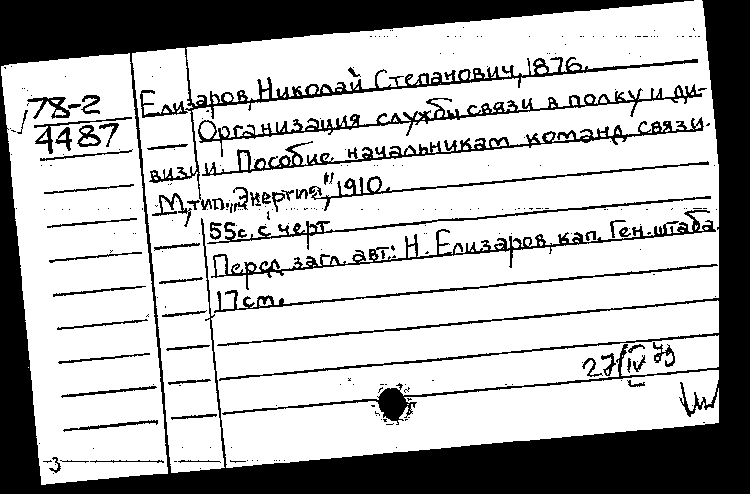 78-2
4487
Елизаров, Николай Степанович, 1876.
Организация службы связи в полку и ди-
визии. Пособие начальникам команд связи.
М., тип. "Энергия", 1910.
55с. с черт.
Перед загл. авт.: Н. Елизаров, кап. Ген. штаба.
17см.
27/IV 79
3